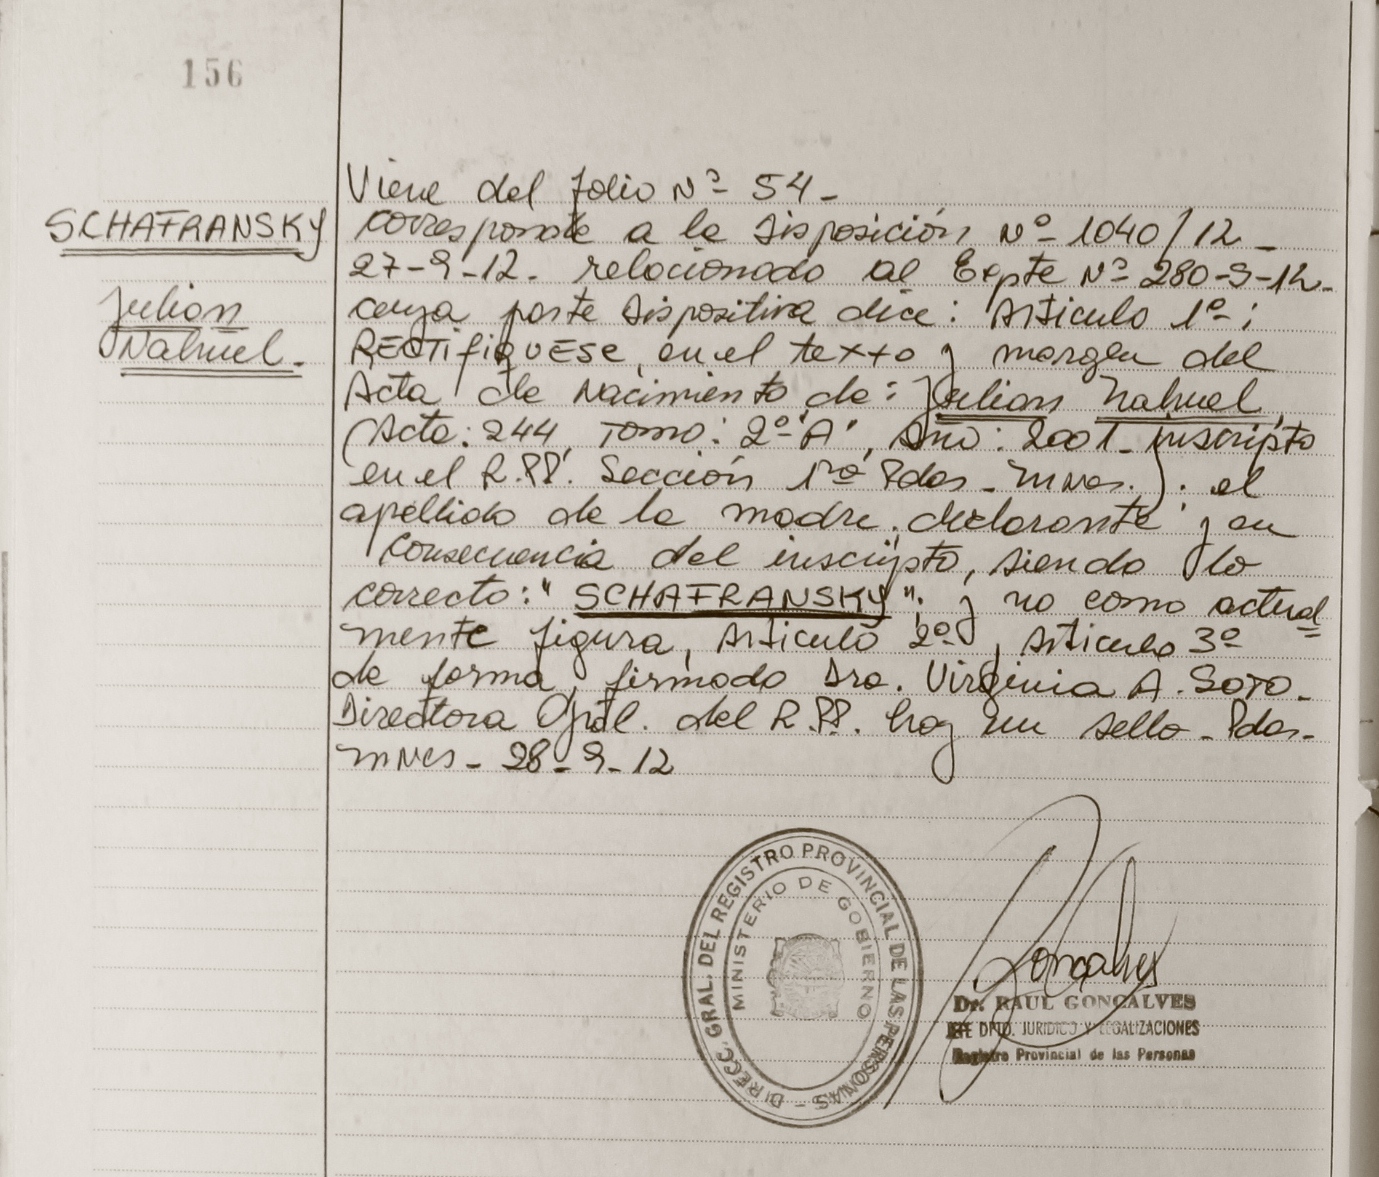 156
Viene del folio Nº 54-
SCHAFRANSKY
Julian
Nahuel.
corresponde a la disposición Nº 1040/12-
27-9-12. relacionado al Expte Nº 280-9-12-
cuya parte dispositiva dice: Articulo 1º:
RECTIFIQUESE, en el texto y margen del
Acta de Nacimiento de: Julian Nahuel,
(Acta: 244, Tomo: 2º"A", Año: 2001- inscripto
en el R.PP. Sección 1ra Pdas-Mnes.). el
apellido de la madre, declarante y en
consecuencia del inscripto, siendo lo
correcto: "SCHAFRANSKY"; y no como actual
mente figura, Articulo 2º, Articulo 3º
de forma, firmado Dra. Virginia A. SOTO-
Directora Gral. del R.PP. hay un sello-Pdas-
mnes- 28-9-12
DIRECC. GRAL. DEL REGISTRO PROVINCIAL DE LAS PERSONAS -
MINISTERIO DE GOBIERNO
Goncalves
Dr. RAUL GONCALVES
JEFE DPTO. JURIDICO Y LEGALIZACIONES
Registro Provincial de las Personas